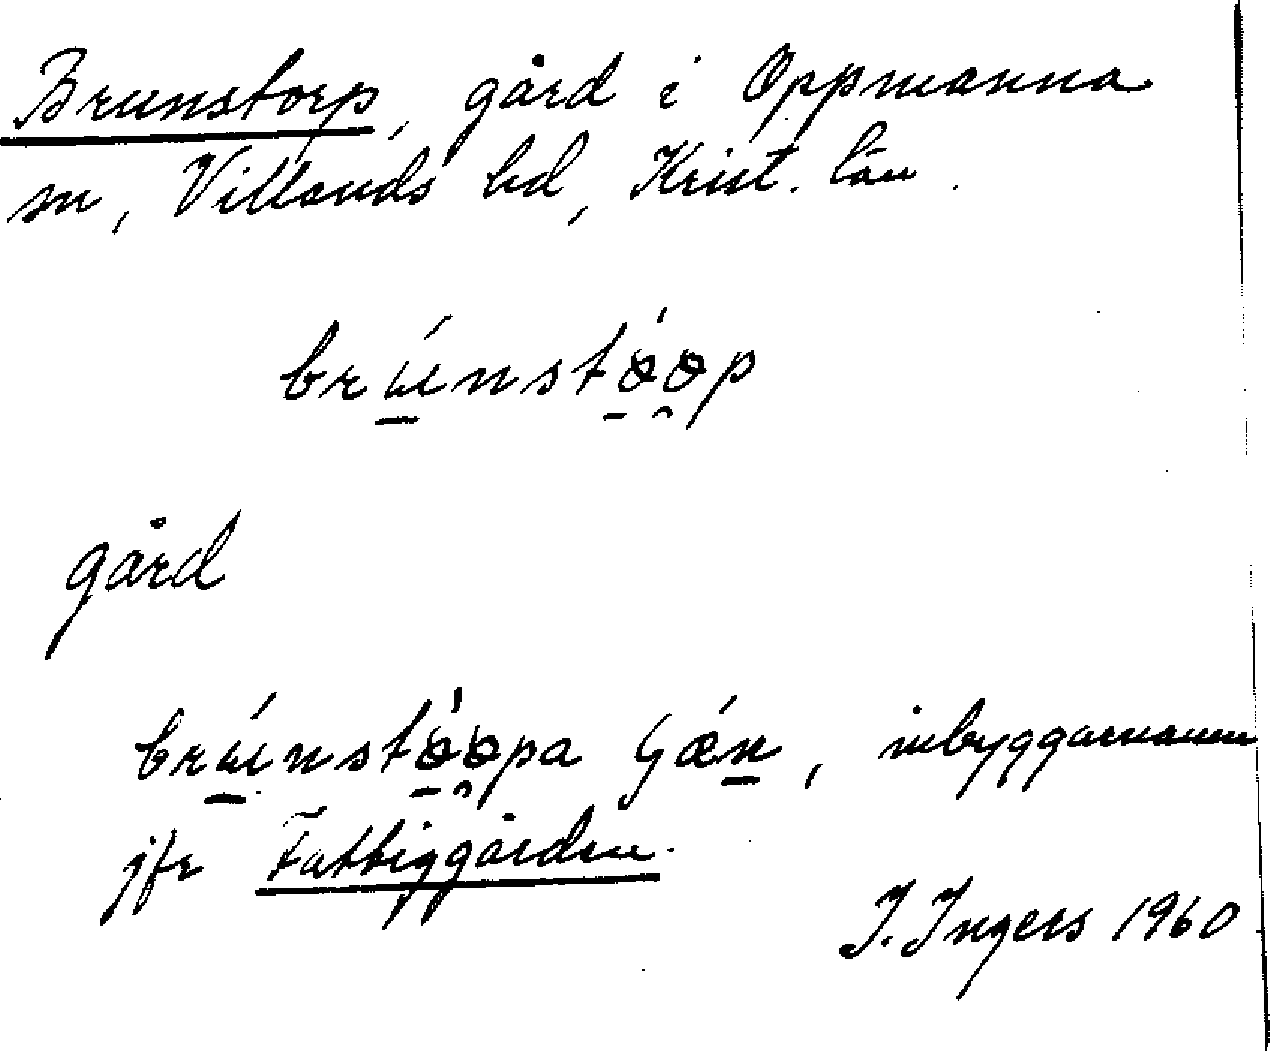 Brunstorp, gård i Oppmanna
sn, Villands hd, Krist. län.
brúnstǿøp
gård
brúnstǿøpa gǽn, inbyggarnamn
jfr Fattiggården.
I. Ingers 1960